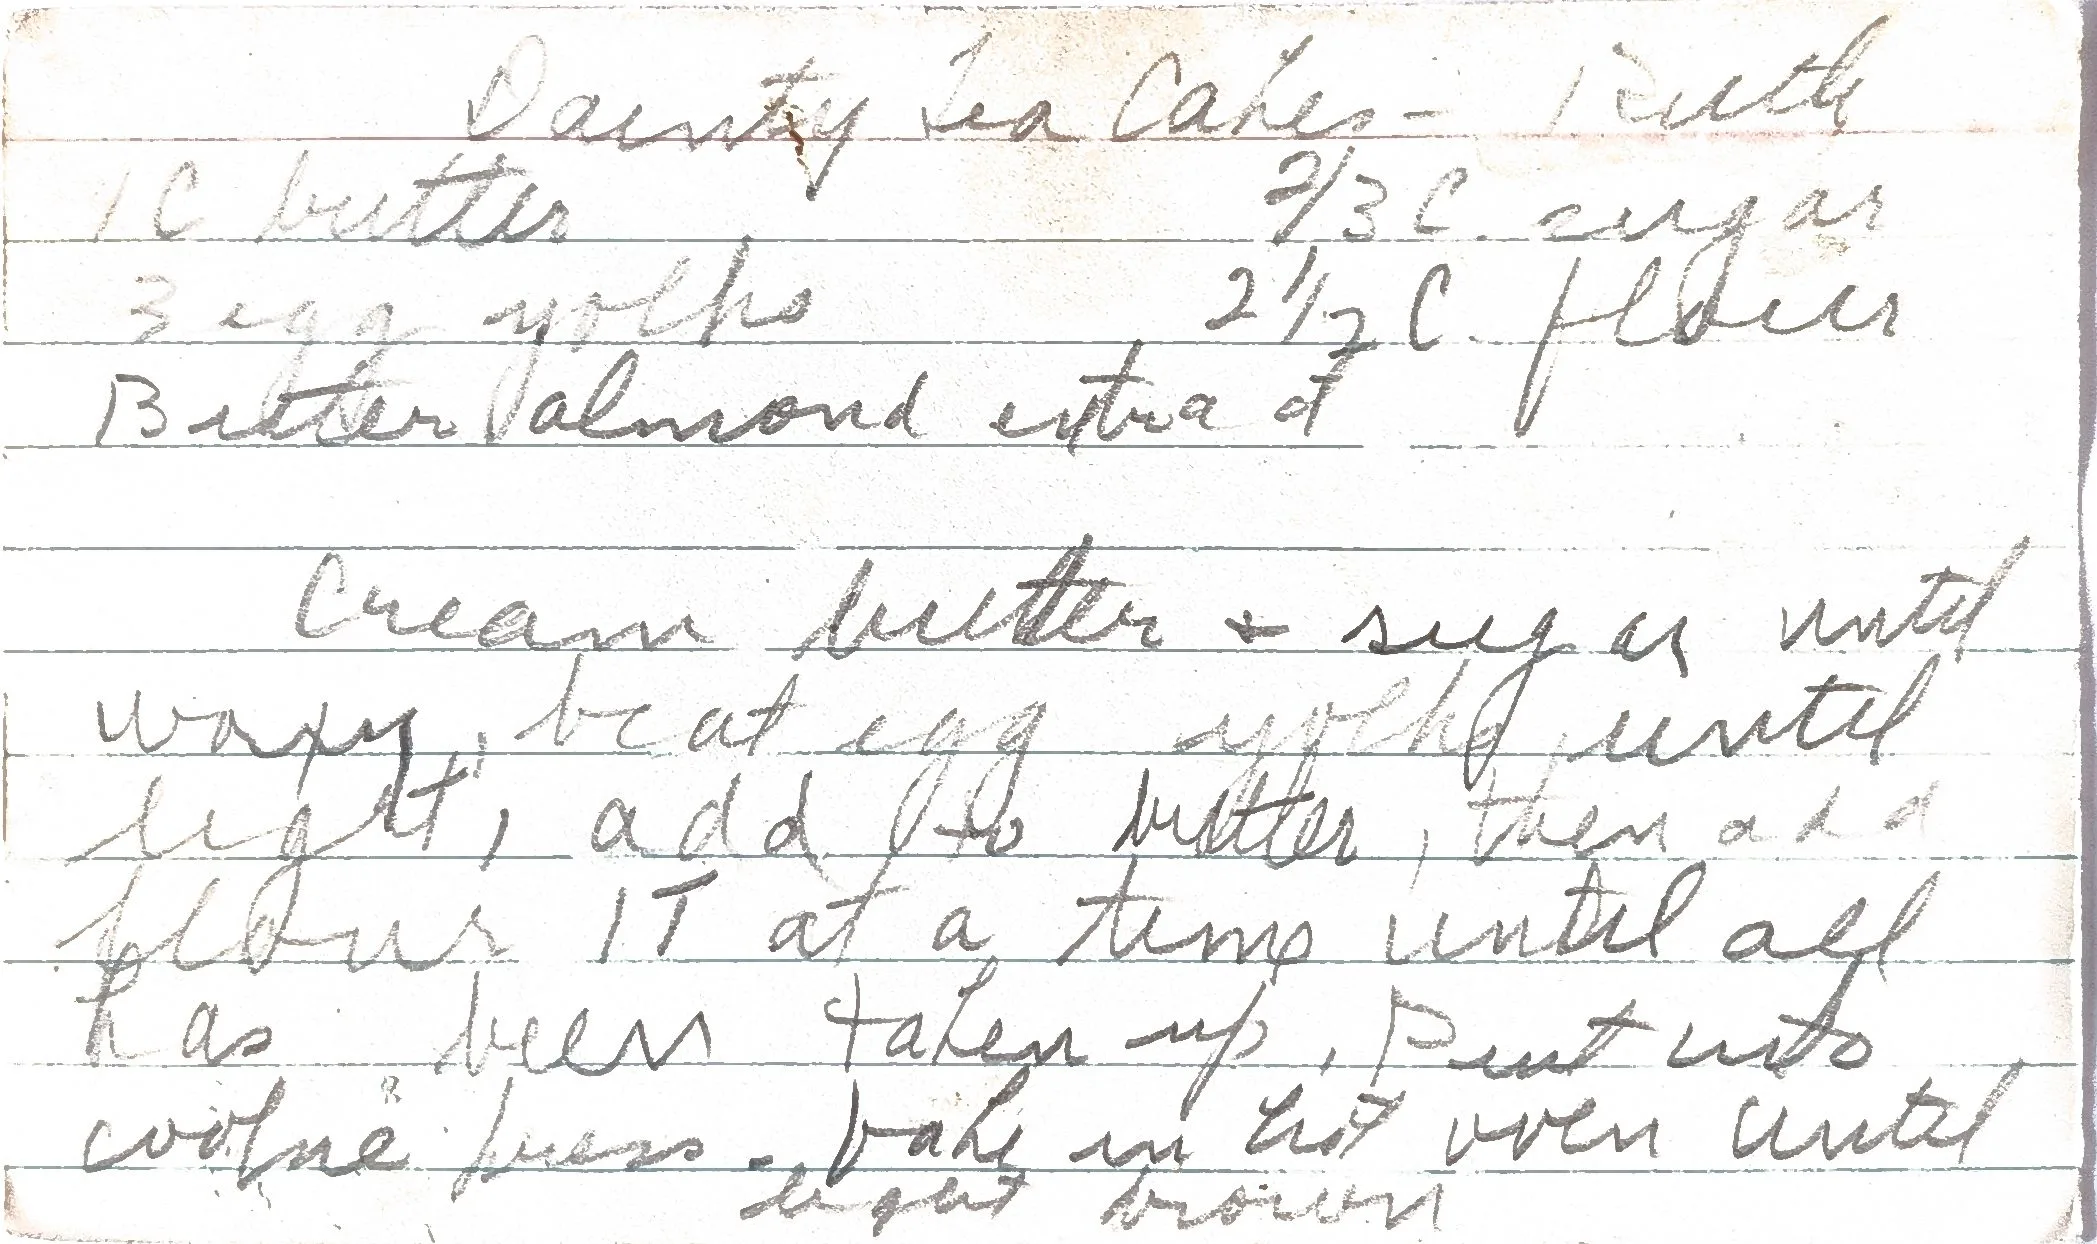 Dainty Tea Cakes - Ruth
1 C butter 2/3 C. sugar
3 egg yolks 2 1/2 C. flour
Bitter almond extract
Cream butter + sugar until
waxy, beat egg yolks until
light, add to butter, then add
flour 1T at a time until all
has been taken up. Put into
cookie press - bake in hot oven until
light brown